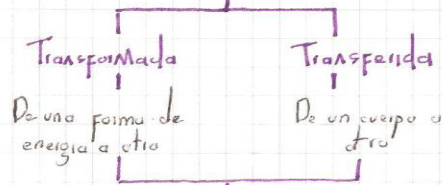 Transformada
Transferida
De una forma de
energia a otra
De un cuerpo a
otro